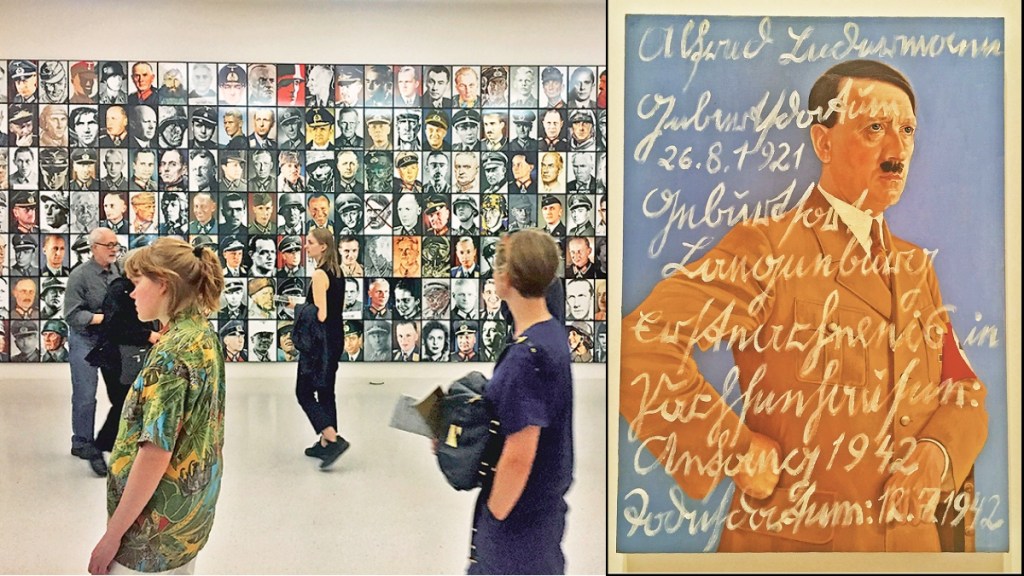 Alfred Ludermann
Geburtsdatum
26.8.1921
Geburtsort
Langenburg
in
Sachsenhausen:
Anfang 1942
Todesdatum: 12.7.1942